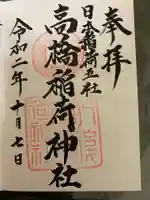 奉拝
日本稲荷五社
高橋稲荷神社
令和二年十月七日